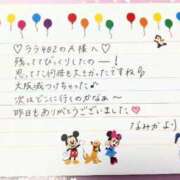 ♡ララ402のA様へ♡
残っててびっくりしたのー!
思ってた何倍も大きかったですね
大阪城つけちゃった♪
次はどこに行くのかなぁ〜
昨日もありがとうございました♡
なみかより